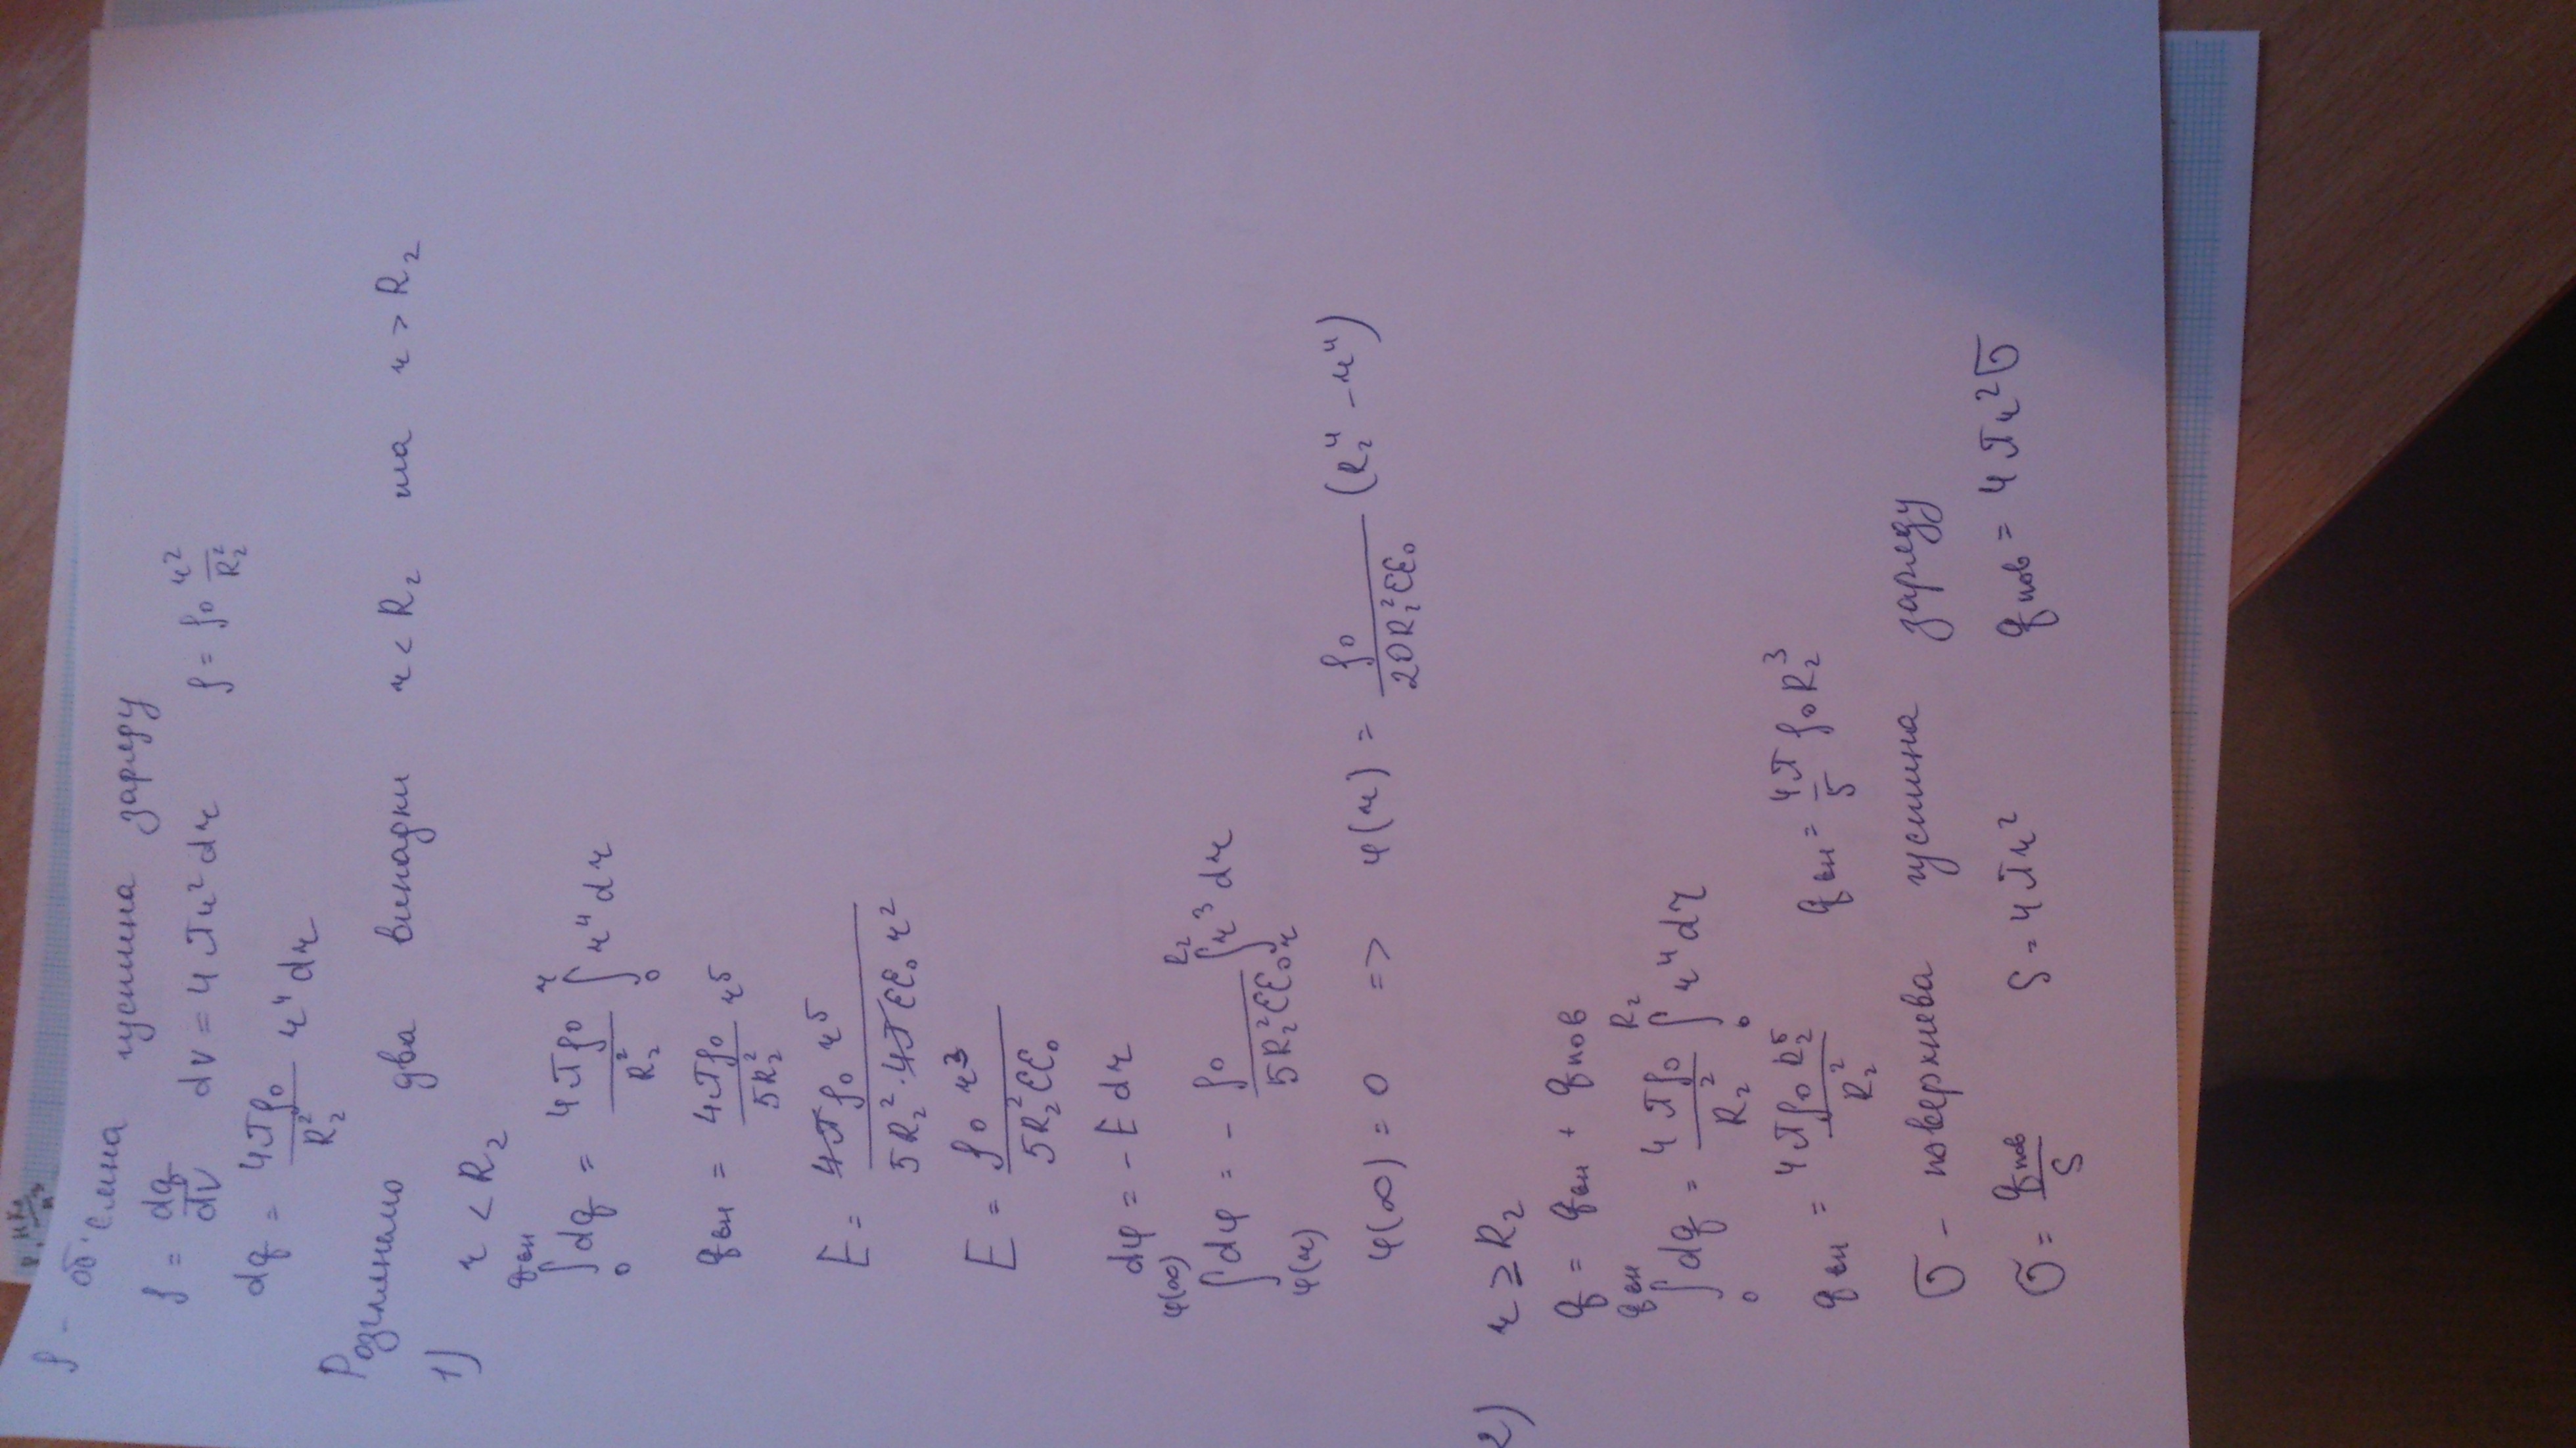 ρ - об'ємна густина заряду
ρ = dq/dV   dV = 4πr² dr   ρ = ρ₀ r²/R₂²
dq = 4πρ₀/R₂² r⁴ dr
Розглянемо два випадки r < R₂ та r > R₂
1) r < R₂
∫₀^qвн dq = 4πρ₀/R₂² ∫₀^r r⁴ dr
qвн = 4πρ₀/5R₂² r⁵
E = 4πρ₀ r⁵/5R₂²·4πεε₀ r²
E = ρ₀ r³/5R₂²εε₀
dφ = - E dr
∫_φ(r)^φ(∞) dφ = - ρ₀/5R₂²εε₀ ∫_r^R₂ r³ dr
φ(∞) = 0 => φ(r) = ρ₀/20R₂²εε₀ (R₂⁴ - r⁴)
2) r ≥ R₂
q = qвн + qпов
∫₀^qвн dq = 4πρ₀/R₂² ∫₀^R₂ r⁴ dr
qвн = 4πρ₀ R₂⁵/R₂²   qвн = 4π/5 ρ₀ R₂³
σ - поверхнева густина заряду
σ = qпов/S   S = 4πr²   qпов = 4πr²σ